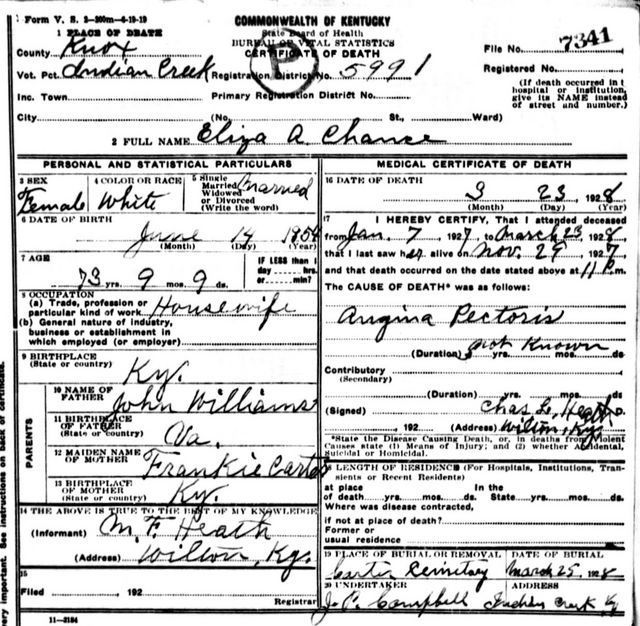 Form V. S. 2-300m-4-19-19
COMMONWEALTH OF KENTUCKY
1 PLACE OF DEATH
State Board of Health
County Knox
BUREAU OF VITAL STATISTICS
File No. 7341
CERTIFICATE OF DEATH
P
Vot. Pct. Indian Creek Registration District No. 5991
Registered No.
Inc. Town
Primary Registration District No.
(If death occurred in t hospital or institution, give its NAME instead of street and number.)
City (No. St., Ward)
2 FULL NAME Eliza A. Chance
PERSONAL AND STATISTICAL PARTICULARS
3 SEX Female
4 COLOR OR RACE White
5 Single Married Widowed or Divorced (Write the word) Married
6 DATE OF BIRTH
June 14 1854
(Month) (Day) (Year)
7 AGE
73 yrs. 9 mos. 9 ds.
IF LESS than 1 day hrs. or min.?
8 OCCUPATION
(a) Trade, profession or particular kind of work Housewife
(b) General nature of industry, business or establishment in which employed (or employer)
9 BIRTHPLACE
(State or country) Ky.
PARENTS
10 NAME OF FATHER John Williams
11 BIRTHPLACE OF FATHER (State or country) Va.
12 MAIDEN NAME OF MOTHER Frankie Carter
13 BIRTHPLACE OF MOTHER (State or country) Ky.
14 THE ABOVE IS TRUE TO THE BEST OF MY KNOWLEDGE
(Informant) M. F. Heath
(Address) Wilton, Ky.
15
Filed , 192
Registrar
11-3184
MEDICAL CERTIFICATE OF DEATH
16 DATE OF DEATH
3 23 1928
(Month) (Day) (Year)
17 I HEREBY CERTIFY, That I attended deceased
from Jan. 7 1927 to March 23 1928
that I last saw her alive on Nov. 29 1927
and that death occurred on the date stated above at 11 P.m.
The CAUSE OF DEATH* was as follows:
Angina Pectoris
not Known
(Duration) yrs. mos. ds
Contributory
(Secondary)
(Duration) yrs. mos. ds
(Signed) Chas. L. Heath D.
, 192 (Address) Wilton, Ky.
*State the Disease Causing Death, or, in deaths from Violent Causes state (1) Means of Injury; and (2) whether Accidental, Suicidal or Homicidal.
LENGTH OF RESIDENCE (For Hospitals, Institutions, Transients or Recent Residents)
at place In the
of death yrs. mos. ds. State yrs. mos. ds.
Where was disease contracted,
if not at place of death?
Former or
usual residence
19 PLACE OF BURIAL OR REMOVAL
DATE OF BURIAL
Carter March 25, 1928
20 UNDERTAKER
ADDRESS
J. P. Campbell Indian Creek Ky
See instructions on back of certificate.
very important.